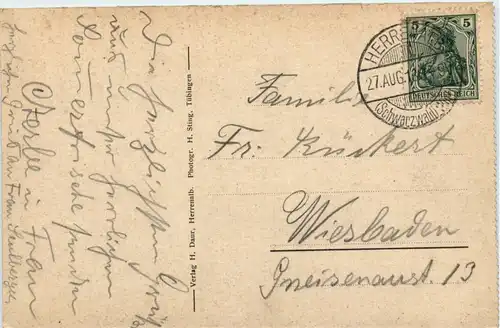 Die herzlichsten Grüße
aus unser herrlichen
Sommerfrische senden
u. Frau
HERRENALB
27. AUG. 12
(Schwarzwald)
5 5
DEUTSCHES REICH
Familie
Fr. Kückert
Wiesbaden
Gneisenaust. 13
Verlag H. Daur, Herrenalb. Photogr. H. Sting, Tübingen